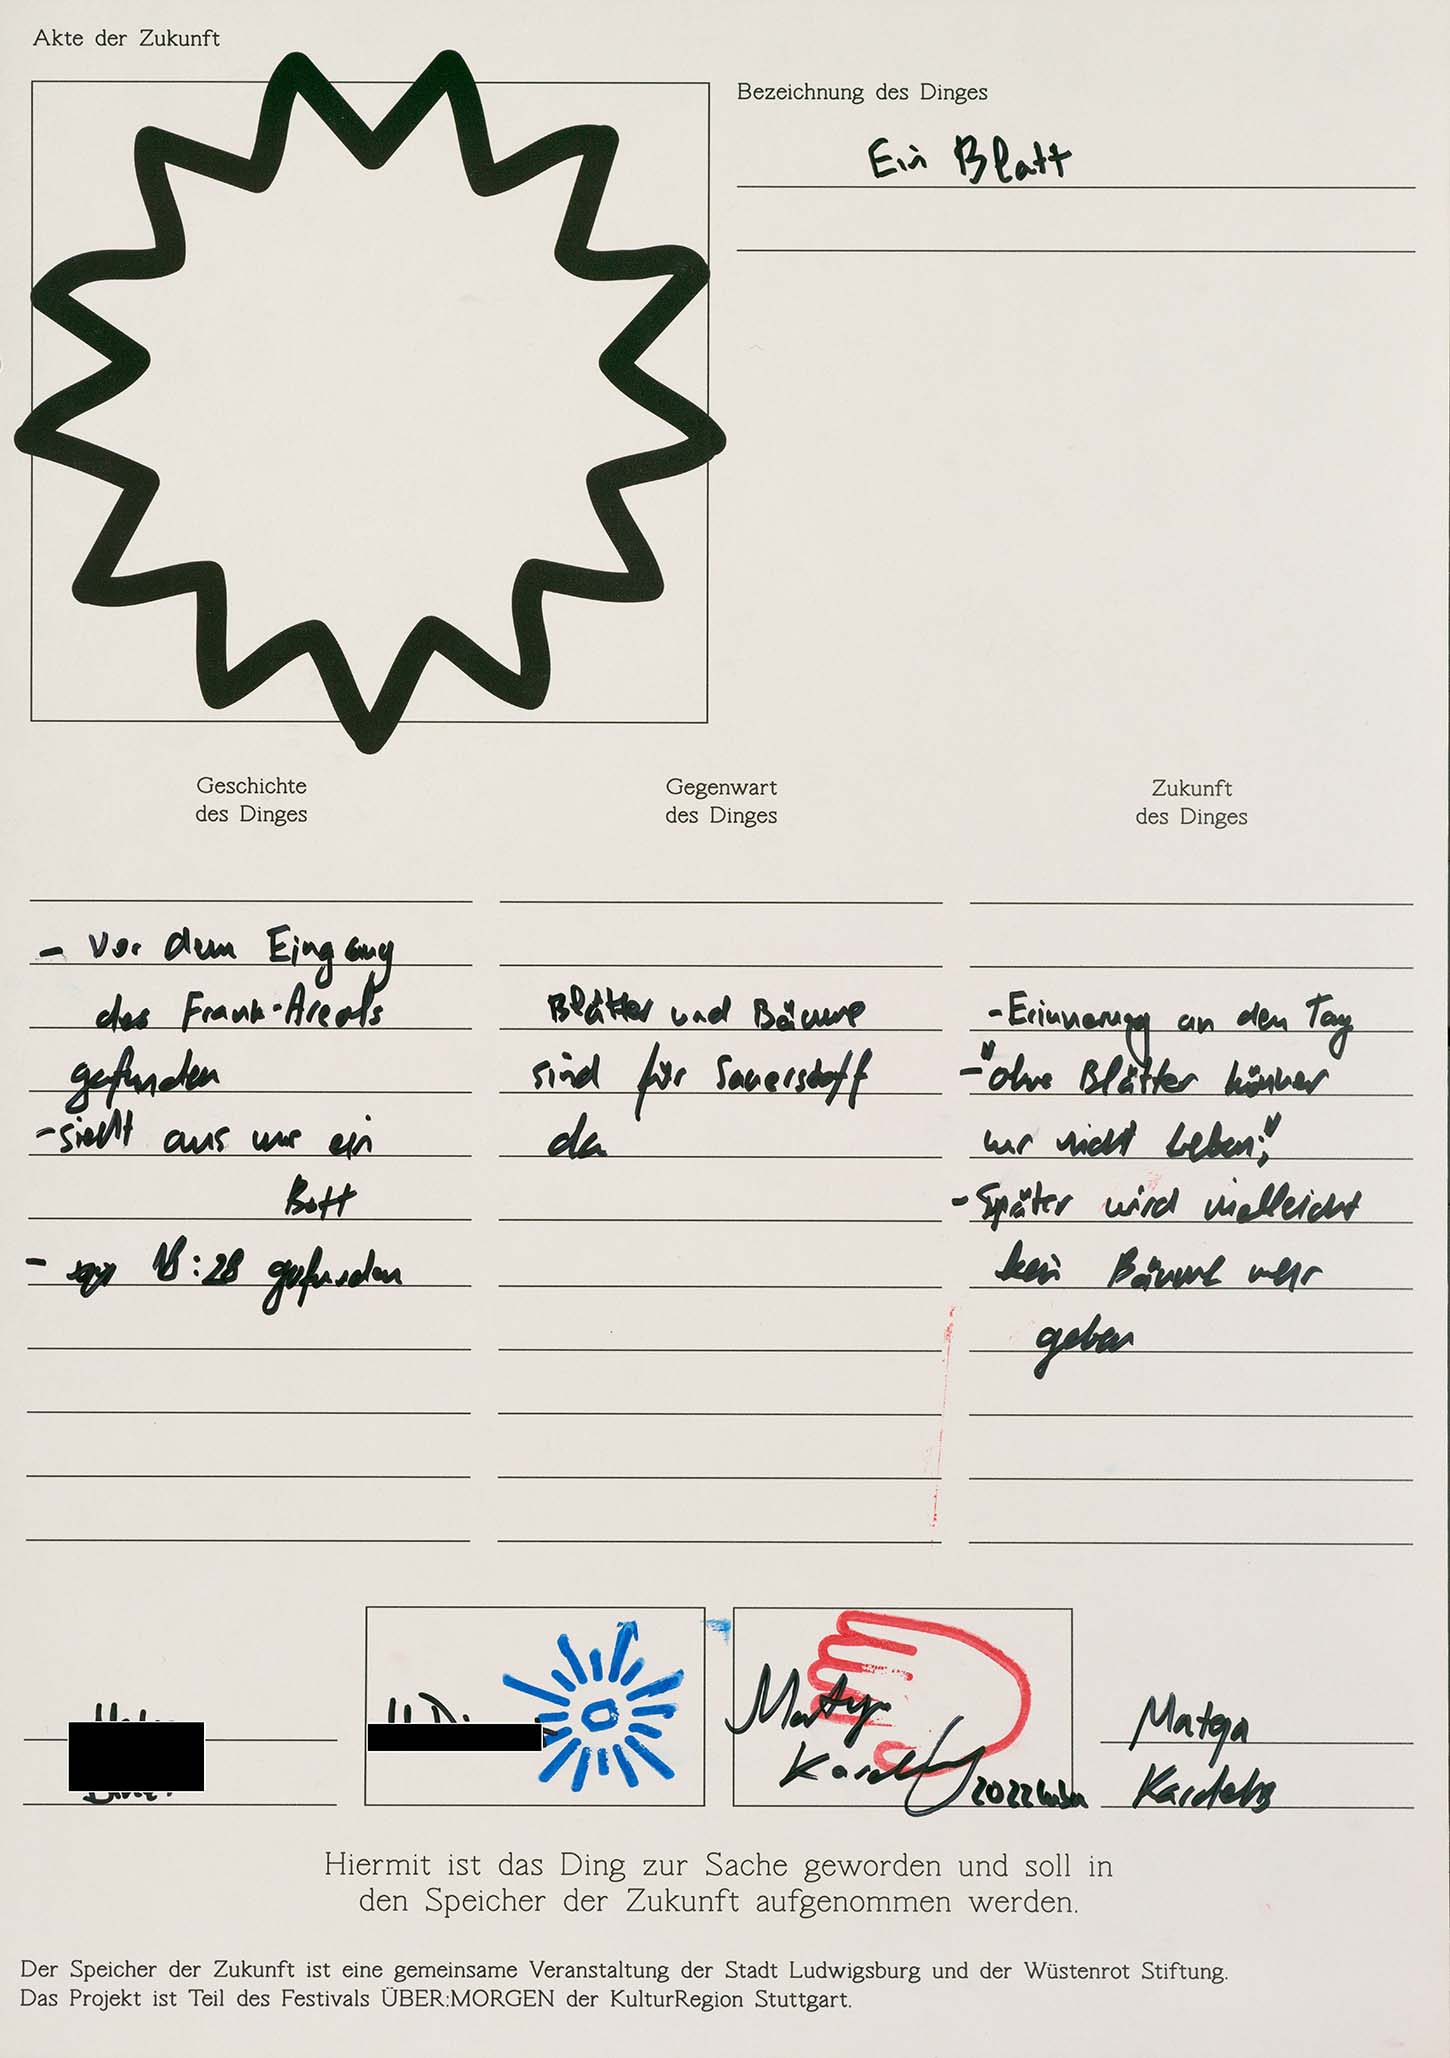 Akte der Zukunft
Bezeichnung des Dinges
Ein Blatt
Geschichte
des Dinges
- Vor dem Eingang
des Frank-Areals
gefunden
- sieht aus wie ein
Bott
- 18:28 gefunden
Gegenwart
des Dinges
Blätter und Bäume
sind für Sauerstoff
da
Zukunft
des Dinges
- Erinnerung an den Tag
- "ohne Blätter können
wir nicht Leben;"
- Später wird vielleicht
kein Bäume mehr
geben
Matya
2022
Matya
Hiermit ist das Ding zur Sache geworden und soll in
den Speicher der Zukunft aufgenommen werden.
Der Speicher der Zukunft ist eine gemeinsame Veranstaltung der Stadt Ludwigsburg und der Wüstenrot Stiftung.
Das Projekt ist Teil des Festivals ÜBER:MORGEN der KulturRegion Stuttgart.